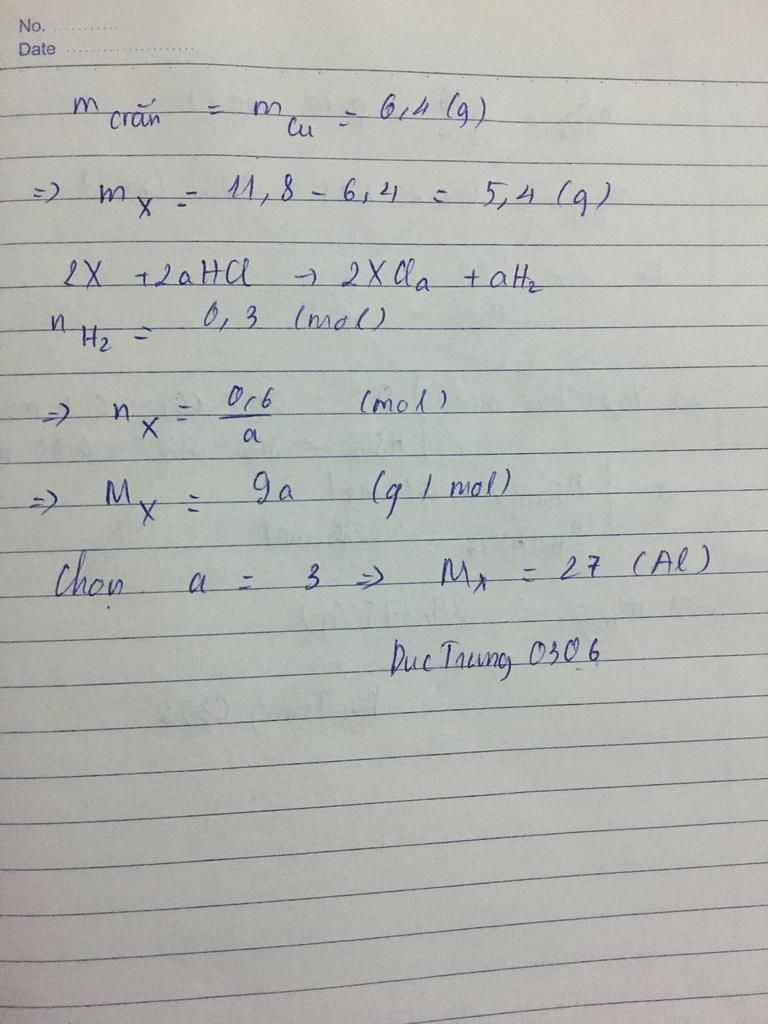 No.
Date
m crắn = m Cu = 6,4 (g)
=> m X = 11,8 - 6,4 = 5,4 (g)
2X + 2aHCl → 2XCla + aH2
n H2 = 0,3 (mol)
=> n X = 0,6/a (mol)
=> M X = 9a (g / mol)
Chọn a = 3 => M X = 27 (Al)
Duc Trung 0306